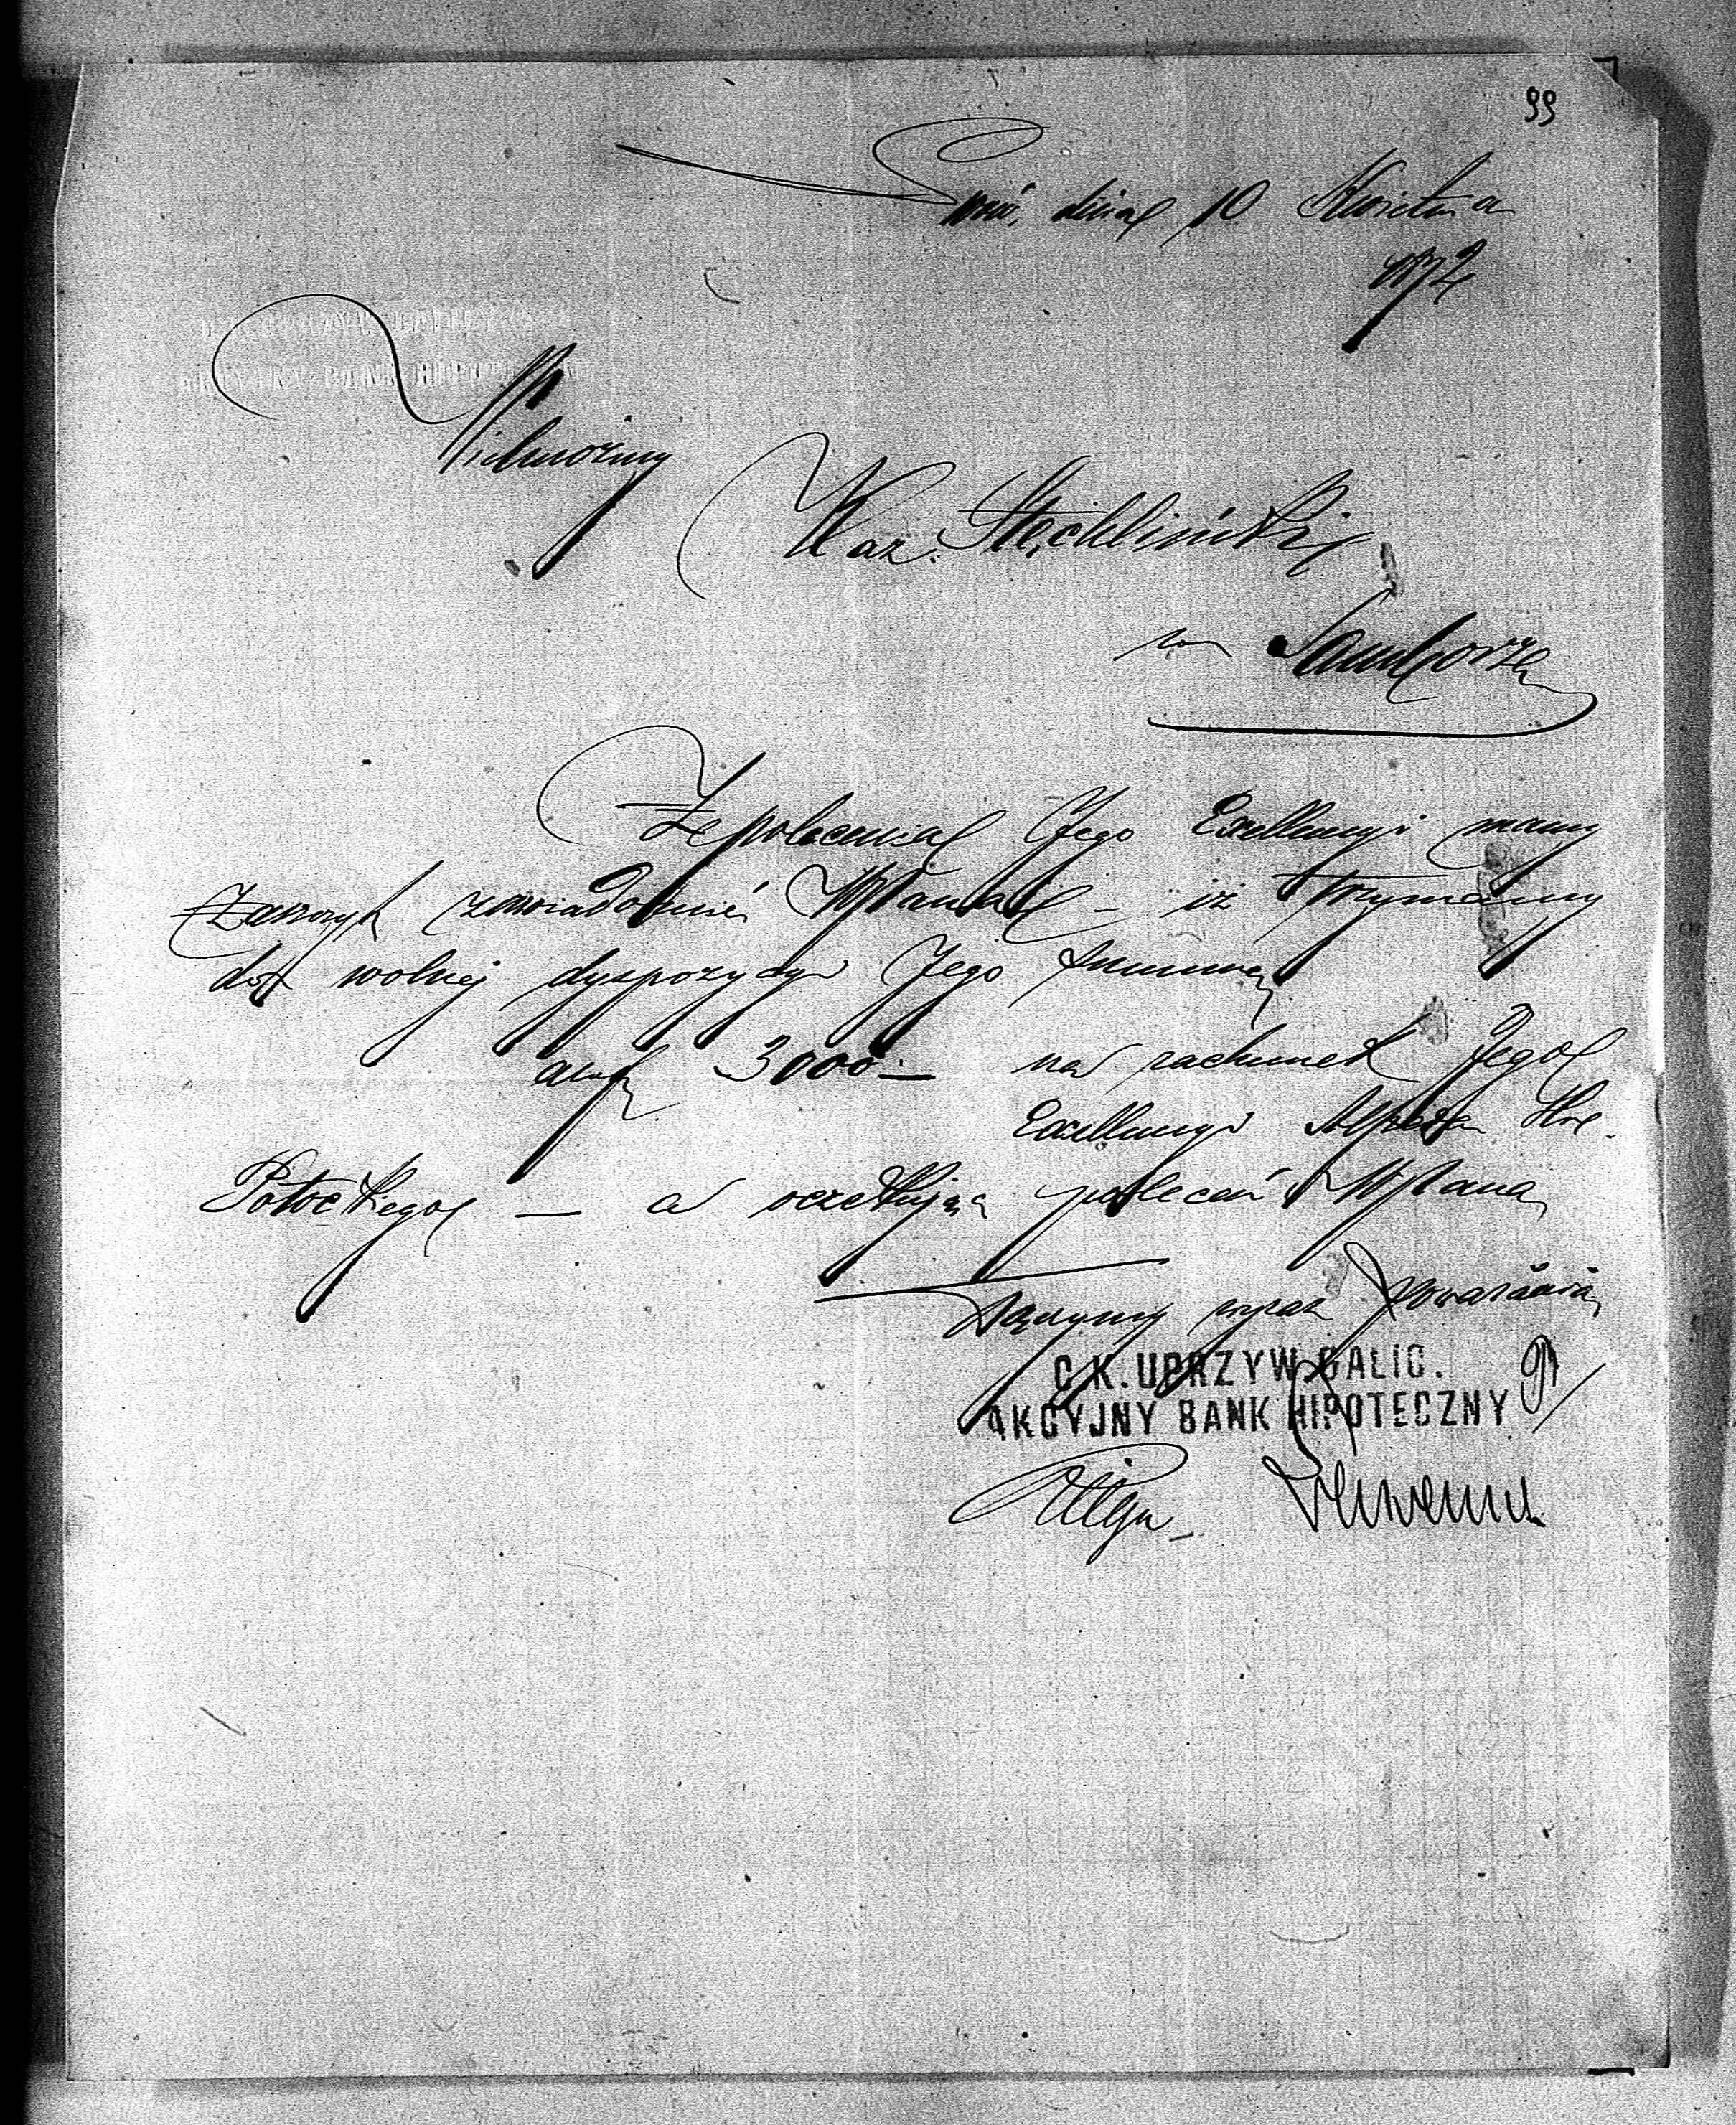 99
Lwów, dnia 10 Kwietnia
1872
AKCYJNY BANK HIPOTECZNY
Wielmożny
Kaz. Stęckliński
w Samborze
Z polecenia Jego Excellencyi mamy
zaszczyt zawiadomić WPana – iż trzymamy
do wolnej dyspozycyi Jego summę
3000.— na rachunek Jego
Excellencyi Alfreda Hr.
Potockiego — a oczekując poleceń WPana
łączymy wyraz poważania
C.K. UPRZYW. GALIC.
AKCYJNY BANK HIPOTECZNY